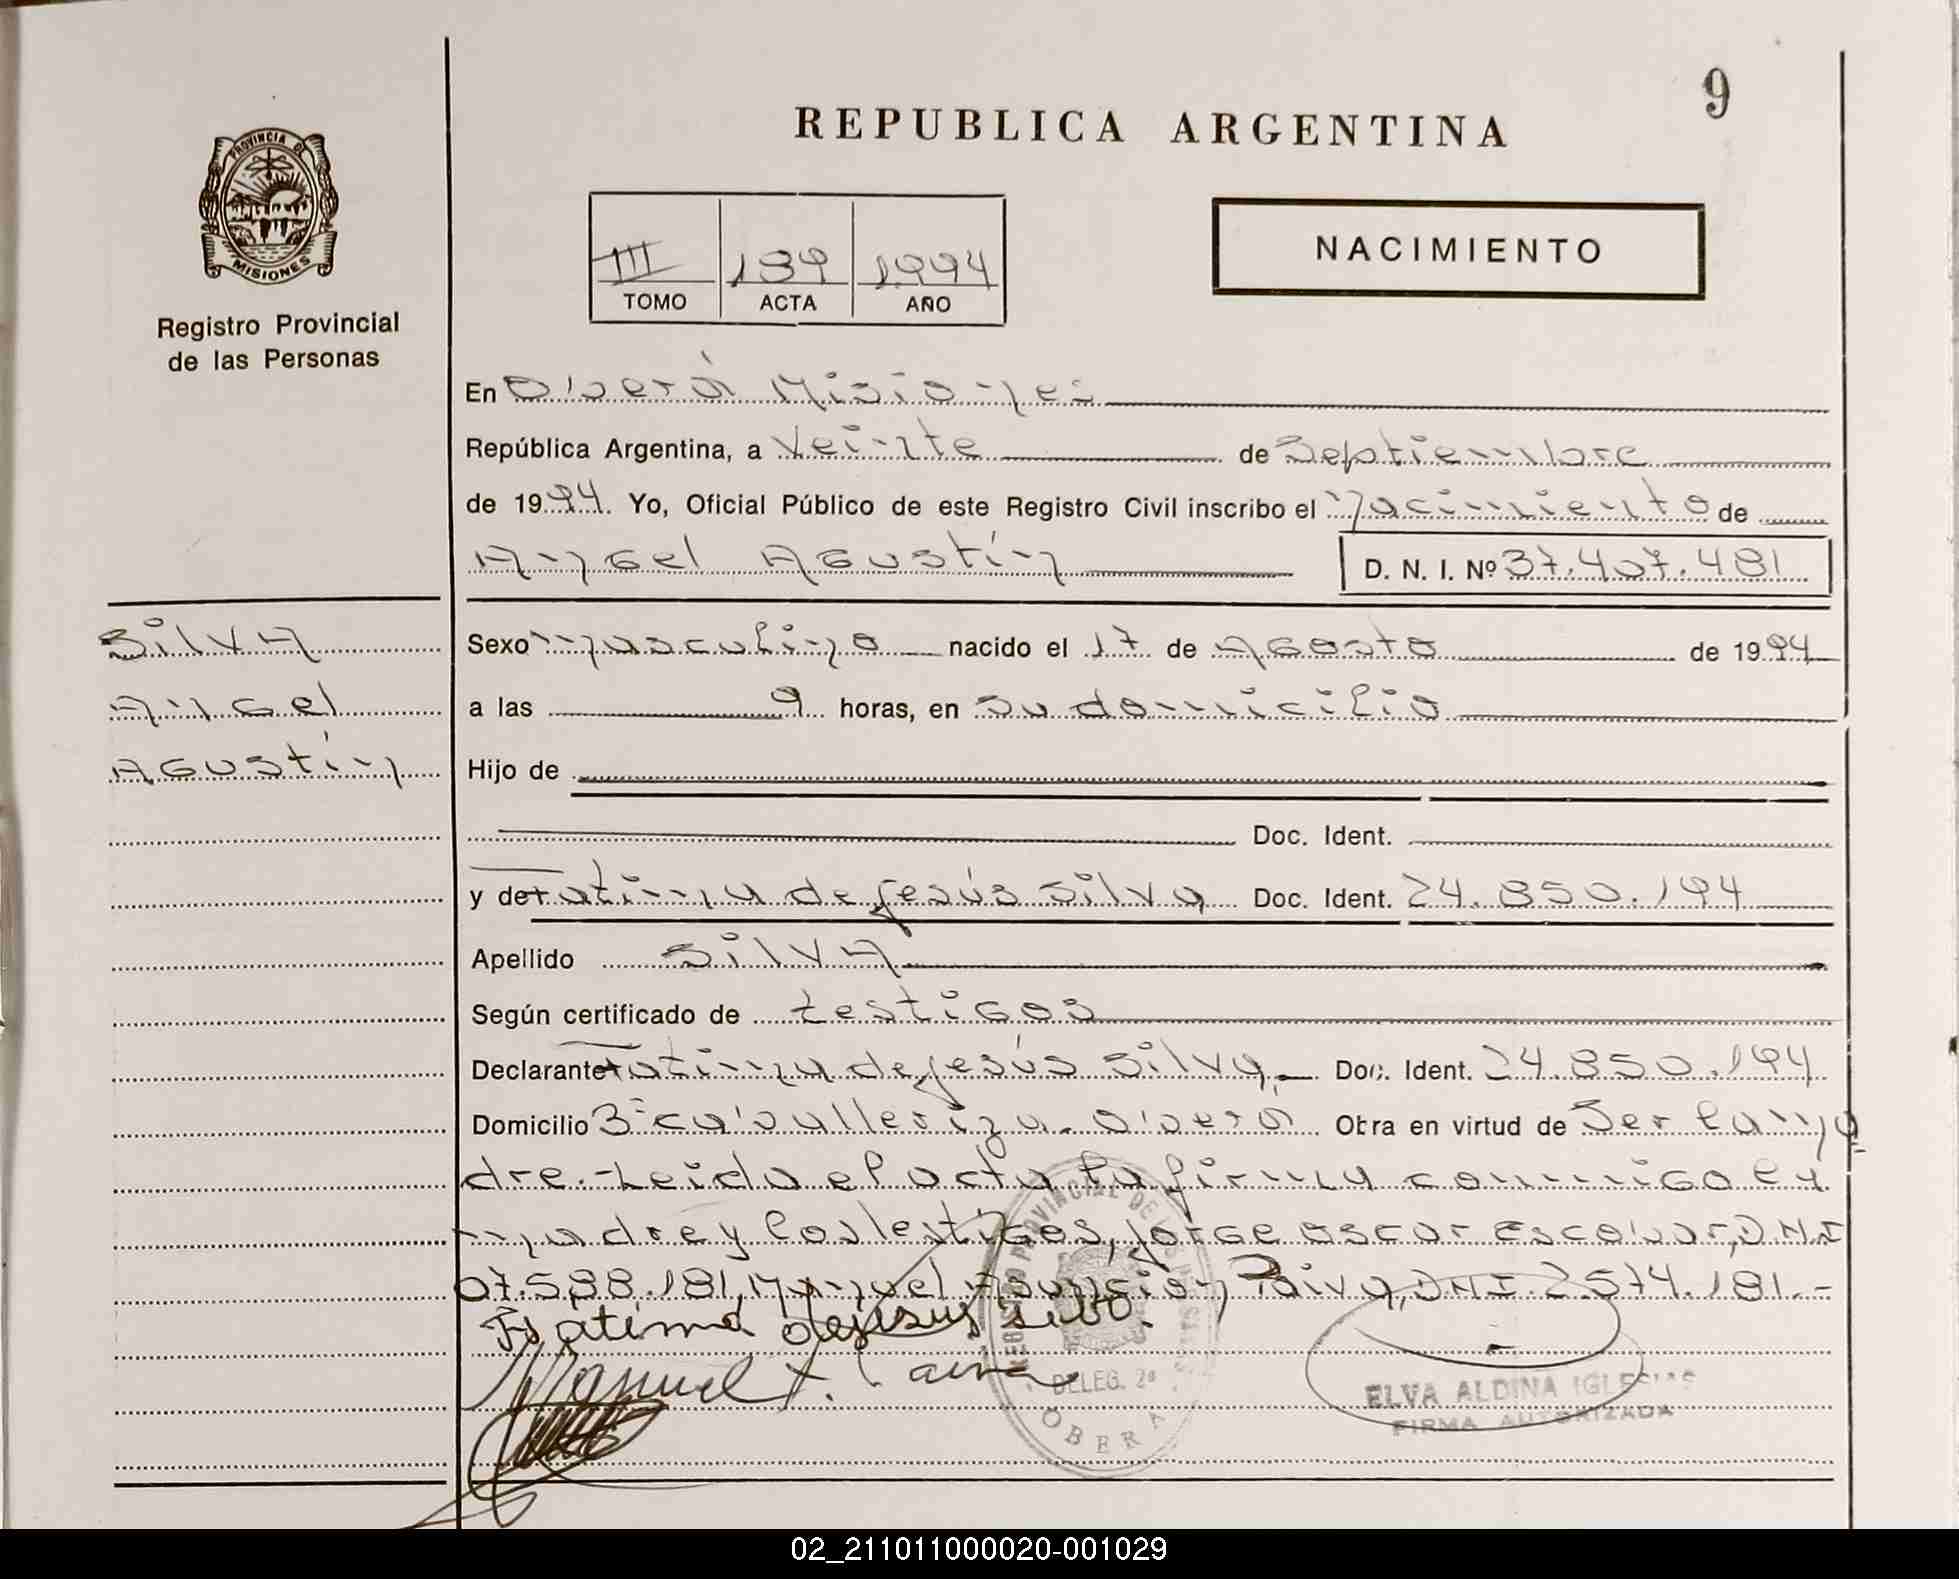 9
REPUBLICA ARGENTINA
PROVINCIA DE
MISIONES
Registro Provincial
de las Personas
III 139 1994
TOMO ACTA AÑO
NACIMIENTO
En Oberá Misiones
República Argentina, a Veinte de Septiembre
de 1994. Yo, Oficial Público de este Registro Civil inscribo el nacimiento de
Angel Agustín D. N. I. Nº 37.407.481
SILVA
Angel
Agustín
Sexo masculino nacido el 17 de Agosto de 1994
a las 9 horas, en su domicilio
Hijo de
Doc. Ident.
y de Fatima de Jesús Silva Doc. Ident. 24.850.194
Apellido SILVA
Según certificado de testigos
Declarante Fatima de Jesús Silva Doc. Ident. 24.850.194
Domicilio 3º caballeriza. Oberá Obra en virtud de Ser la ma
dre.-Leida el acta la firma conmigo la
madre y los testigos, Jorge Oscar Escobar, D.N.I
07.588.181, Manuel Asunción Paiva, DNI 2.574.181.-
Fatima de jesus silva.
Manuel A. Paiva
REGISTRO PROVINCIAL DE LAS PERSONAS
DELEG. 2ª
OBERA
ELVA ALDINA IGLESIAS
FIRMA AUTORIZADA
02_211011000020-001029